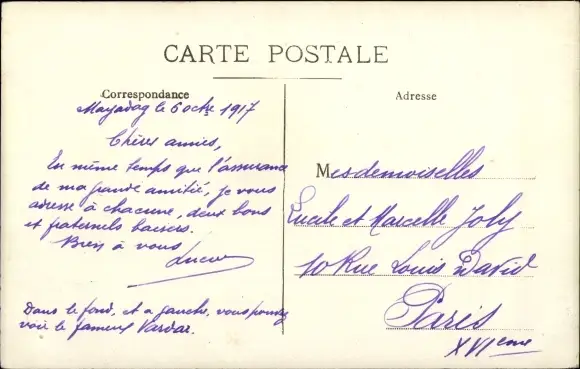 CARTE POSTALE
Correspondance
Mayadag le 6 octre 1917
Chères amies,
En même temps que l'assurance
de ma grande amitié, je vous
adresse à chacune, deux bons
et fraternels baisers.
Bien à vous
Lucien
Dans le fond, et a gauche, vous pouvez
voir le fameux Vardar.
Adresse
Mesdemoiselles
Lucile et Marcelle Joly
10 Rue Louis David
Paris
XVIeme